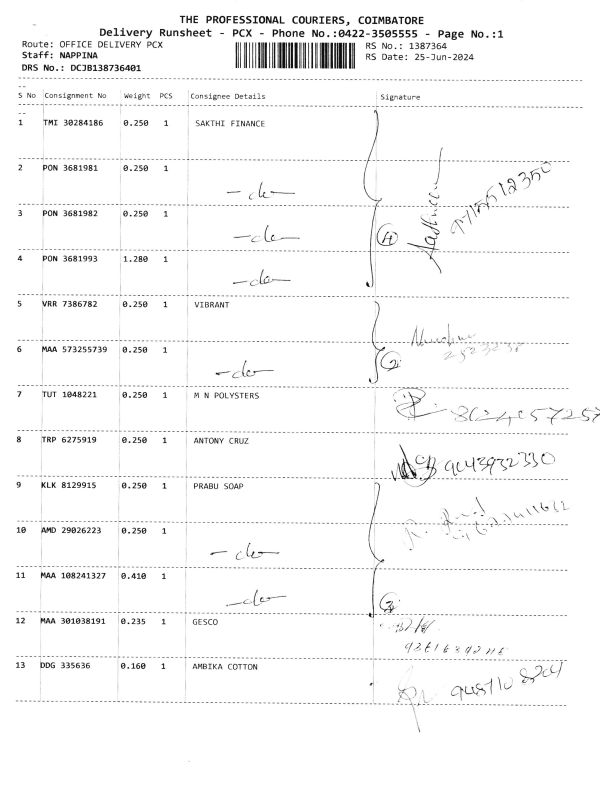 THE PROFESSIONAL COURIERS, COIMBATORE
Delivery Runsheet - PCX - Phone No.:0422-3505555 - Page No.:1
Route: OFFICE DELIVERY PCX RS No.: 1387364
Staff: NAPPINA RS Date: 25-Jun-2024
DRS No.: DCJB138736401
S No Consignment No Weight PCS Consignee Details Signature
1 TMI 30284186 0.250 1 SAKTHI FINANCE
2 PON 3681981 0.250 1
-do-
3 PON 3681982 0.250 1
-do- 4
4 PON 3681993 1.280 1
-do-
5 VRR 7386782 0.250 1 VIBRANT
6 MAA 573255739 0.250 1
-do- 2
7 TUT 1048221 0.250 1 M N POLYSTERS
8 TRP 6275919 0.250 1 ANTONY CRUZ
9043932330
9 KLK 8129915 0.250 1 PRABU SOAP
10 AMD 29026223 0.250 1
-do-
11 MAA 108241327 0.410 1
-do- 3
12 MAA 301038191 0.235 1 GESCO
13 DDG 335636 0.160 1 AMBIKA COTTON